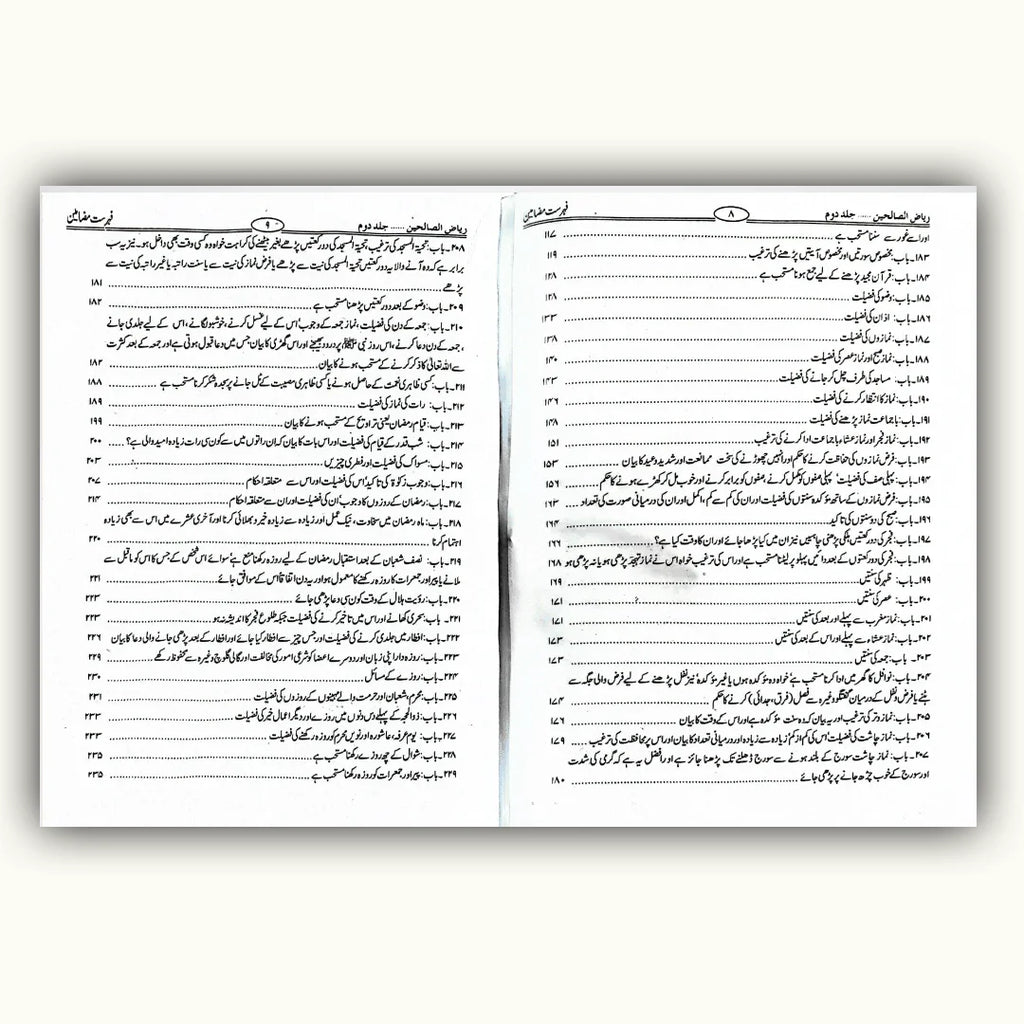 ریاض الصالحین ...... جلد دوم ۸ فہرست مضامین
اور اسے غور سے سننا مستحب ہے ۱۱۷
۱۸۳۔ باب: مخصوص سورتیں اور مخصوص آیتیں پڑھنے کی ترغیب ۱۱۹
۱۸۴۔ باب: قرآن مجید پڑھنے کے لیے جمع ہونا مستحب ہے ۱۲۸
۱۸۵۔ باب: وضو کی فضیلت ۱۲۸
۱۸۶۔ باب: اذان کی فضیلت ۱۳۳
۱۸۷۔ باب: نمازوں کی فضیلت ۱۳۸
۱۸۸۔ باب: نماز صبح اور نماز عصر کی فضیلت ۱۴۰
۱۸۹۔ باب: مساجد کی طرف چل کر جانے کی فضیلت ۱۴۳
۱۹۰۔ باب: نماز کا انتظار کرنے کی فضیلت ۱۴۶
۱۹۱۔ باب: با جماعت نماز پڑھنے کی فضیلت ۱۴۸
۱۹۲۔ باب: نماز فجر اور نماز عشاء با جماعت ادا کرنے کی ترغیب ۱۵۱
۱۹۳۔ باب: فرض نمازوں کی حفاظت کرنے کا حکم اور انہیں چھوڑنے کی سخت ممانعت اور شدید وعید کا بیان ۱۵۳
۱۹۴۔ باب: پہلی صف کی فضیلت' پہلی صفوں کو مکمل کرنے، صفوں کو برابر کرنے اور خوب مل کر کھڑے ہونے کا حکم ۱۵۶
۱۹۵۔ باب: فرض نمازوں کے ساتھ مؤکدہ سنتوں کی فضیلت اور ان کی کم سے کم، اکمل اور ان کی درمیانی صورت کی تعداد ۱۶۳
۱۹۶۔ باب: صبح کی دو سنتوں کی تاکید ۱۶۴
۱۹۷۔ باب: فجر کی دو رکعتیں ہلکی پڑھنی چاہییں نیز ان میں کیا پڑھا جائے اور ان کا وقت کیا ہے؟ ۱۶۶
۱۹۸۔ باب: فجر کی دو رکعتوں کے بعد دائیں پہلو پر لیٹنا مستحب ہے اور اس کی ترغیب خواہ اس نے نماز تہجد پڑھی ہو یا نہ پڑھی ہو ۱۶۸
۱۹۹۔ باب: ظہر کی سنتیں ۱۶۹
۲۰۰۔ باب: عصر کی سنتیں ۱۷۱
۲۰۱۔ باب: نماز مغرب سے پہلے اور بعد کی سنتیں ۱۷۱
۲۰۲۔ باب: نماز عشاء سے پہلے اور اس کے بعد کی سنتیں ۱۷۳
۲۰۳۔ باب: جمعہ کی سنتیں ۱۷۳
۲۰۴۔ باب: نوافل کا گھر میں ادا کرنا مستحب ہے' خواہ وہ مؤکدہ ہوں یا غیر مؤکدہ' نیز نفل پڑھنے کے لیے فرض والی جگہ سے
ہٹنے یا فرض و نفل کے درمیان گفتگو وغیرہ سے فصل (فرق، جدائی) کرنے کا حکم ۱۷۴
۲۰۵۔ باب: نماز وتر کی ترغیب اور یہ بیان کہ وہ سنت مؤکدہ ہے اور اس کے وقت کا بیان ۱۷۶
۲۰۶۔ باب: نماز چاشت کی فضیلت' اس کی کم از کم' زیادہ سے زیادہ اور درمیانی تعداد کا بیان اور اس پر محافظت کی ترغیب ۱۷۹
۲۰۷۔ باب: نماز چاشت سورج کے بلند ہونے سے سورج ڈھلنے تک پڑھنا جائز ہے اور افضل یہ ہے کہ گرمی کی شدت
اور سورج کے خوب چڑھ جانے پر پڑھی جائے ۱۸۰
ریاض الصالحین ...... جلد دوم ۹ فہرست مضامین
۲۰۸۔ باب: تحیۃ المسجد کی ترغیب، تحیۃ المسجد کی دو رکعتیں پڑھے بغیر بیٹھنے کی کراہت خواہ وہ کسی وقت بھی داخل ہو۔ نیز یہ سب
برابر ہے کہ وہ آنے والا یہ دو رکعتیں تحیۃ المسجد کی نیت سے پڑھے یا فرض نماز کی نیت سے یا سنت راتبہ یا غیر راتبہ کی نیت سے
پڑھے ۱۸۱
۲۰۹۔ باب: وضو کے بعد دو رکعتیں پڑھنا مستحب ہے ۱۸۲
۲۱۰۔ باب: جمعہ کے دن کی فضیلت، نماز جمعہ کے وجوب' اس کے لیے غسل کرنے، خوشبو لگانے، اس کے لیے جلدی جانے
، جمعہ کے دن دعا کرنے، اس روز نبی ﷺ پر درود بھیجنے اور اس گھڑی کا بیان جس میں دعا قبول ہوتی ہے اور جمعہ کے بعد کثرت
سے اللہ تعالیٰ کا ذکر کرنے کے مستحب ہونے کا بیان ۱۸۲
۲۱۱۔ باب: کسی ظاہری نعمت کے حاصل ہونے یا کسی ظاہری مصیبت کے ٹل جانے پر سجدہ شکر کرنا مستحب ہے ۱۸۸
۲۱۲۔ باب: رات کی نماز کی فضیلت ۱۸۹
۲۱۳۔ باب: قیام رمضان یعنی تراویح کے مستحب ہونے کا بیان ۱۹۹
۲۱۴۔ باب: شب قدر کے قیام کی فضیلت اور اس بات کا بیان کہ ان راتوں میں سے کون سی رات زیادہ امید والی ہے؟ ۲۰۰
۲۱۵۔ باب: مسواک کی فضیلت اور فطری چیزیں ۲۰۳
۲۱۶۔ باب: وجوب زکوٰۃ کی تاکید' اس کی فضیلت اور اس سے متعلقہ احکام ۲۰۷
۲۱۷۔ باب: رمضان کے روزوں کا وجوب' ان کی فضیلت اور ان سے متعلقہ احکام ۲۱۴
۲۱۸۔ باب: ماہ رمضان میں سخاوت، نیک عمل اور زیادہ سے زیادہ خیر و بھلائی کرنا اور آخری عشرے میں اس سے بھی زیادہ
اہتمام کرنا ۲۲۰
۲۱۹۔ باب: نصف شعبان کے بعد استقبال رمضان کے لیے روزہ رکھنا منع ہے' سوائے اس شخص کے جس کا اس کو ماقبل سے
ملانے یا پیر اور جمعرات کا روزہ رکھنے کا معمول ہو اور یہ دن اتفاقاً اس کے موافق ہو جائے ۲۲۱
۲۲۰۔ باب: رؤیت ہلال کے وقت کون سی دعا پڑھی جائے ۲۲۳
۲۲۱۔ باب: سحری کھانے اور اس میں تاخیر کرنے کی فضیلت جبکہ طلوع فجر کا اندیشہ نہ ہو ۲۲۳
۲۲۲۔ باب: افطار میں جلدی کرنے کی فضیلت اور جس چیز سے افطار کیا جائے اور افطار کے بعد پڑھی جانے والی دعا کا بیان ۲۲۶
۲۲۳۔ باب: روزہ دار اپنی زبان اور دوسرے اعضا کو شرعی امور کی مخالفت اور گالی گلوچ وغیرہ سے محفوظ رکھے ۲۲۹
۲۲۴۔ باب: روزے کے مسائل ۲۳۰
۲۲۵۔ باب: محرم، شعبان اور حرمت والے مہینوں کے روزوں کی فضیلت ۲۳۱
۲۲۶۔ باب: ذوالحجہ کے پہلے دس دنوں میں روزے اور دیگر اعمال خیر کی فضیلت ۲۳۳
۲۲۷۔ باب: یوم عرفہ، عاشورہ اور نویں محرم کو روزہ رکھنے کی فضیلت ۲۳۳
۲۲۸۔ باب: شوال کے چھ روزے رکھنا مستحب ہے ۲۳۵
۲۲۹۔ باب: پیر اور جمعرات کو روزہ رکھنا مستحب ہے ۲۳۵